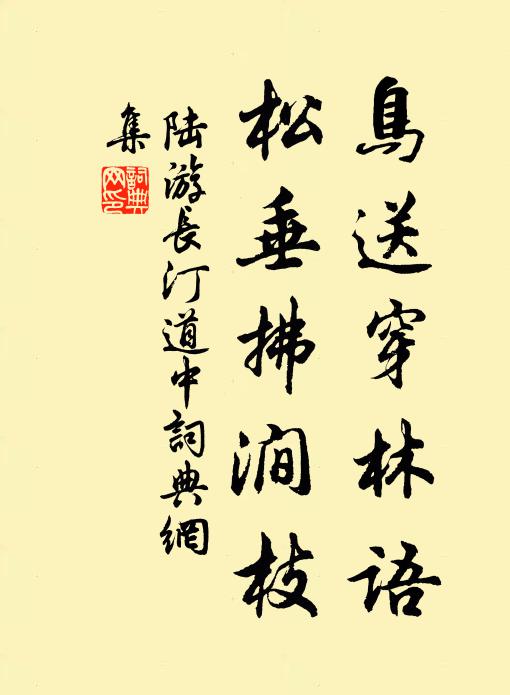 鳥送穿林語
松垂拂澗枝
陆游長汀道中詞典網
集
詞典
网印